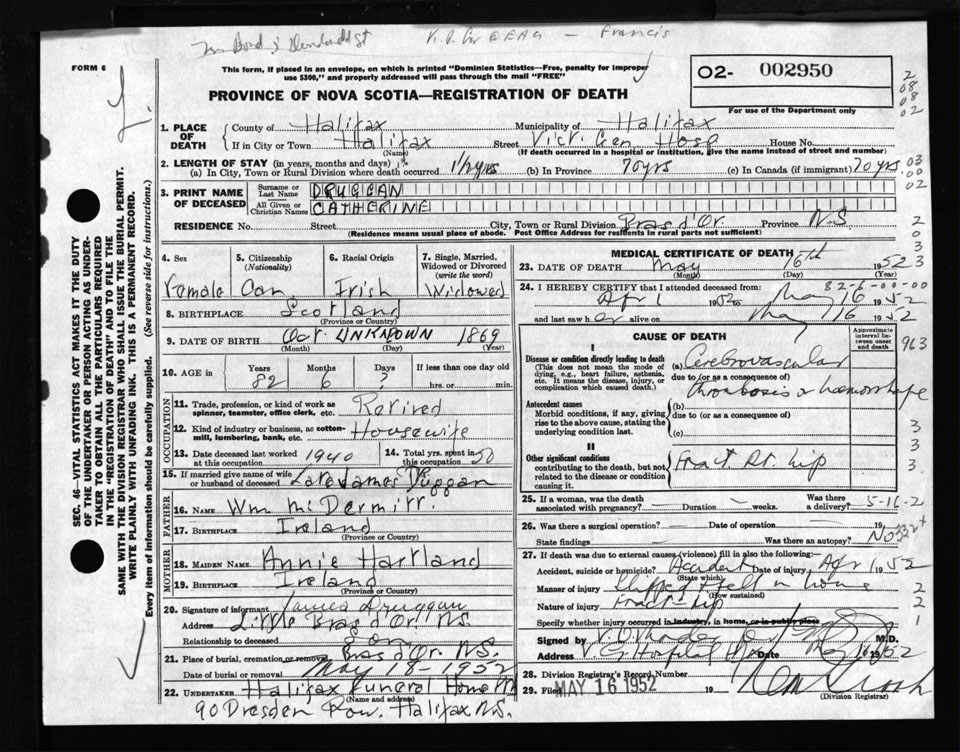 Francis
FORM 6
This form, if placed in an envelope, on which is printed "Dominion Statistics—Free, penalty for improper
use $300," and properly addressed will pass through the mail "FREE"
O2- 002950
For use of the Department only
PROVINCE OF NOVA SCOTIA—REGISTRATION OF DEATH
2
08
08
02
1. PLACE OF DEATH { County of Halifax Municipality of Halifax
If in City or Town Halifax (Name) Street Vict. Gen. Hosp House No.
(If death occurred in a hospital or institution, give the name instead of street and number)
2. LENGTH OF STAY (in years, months and days)
(a) In City, Town or Rural Division where death occurred (b) In Province 70yrs (c) In Canada (if immigrant) 70 yrs.
03
00
02
3. PRINT NAME OF DECEASED
Surname or Last Name DRUGGAN
All Given or Christian Names CATHERINE
RESIDENCE No. Street City, Town or Rural Division Bras d'Or Province N.S
(Residence means usual place of abode. Post Office Address for residents in rural parts not sufficient)
4. Sex 5. Citizenship (Nationality) 6. Racial Origin 7. Single, Married, Widowed or Divorced (write the word)
Female Can Irish Widowed
8. BIRTHPLACE Scotland
(Province or Country)
9. DATE OF BIRTH Oct. UNKNOWN 1869
(Month) (Day) (Year)
10. AGE in Years Months Days If less than one day
82 6 ? hrs. or min.
OCCUPATION
11. Trade, profession or kind of work as spinner, teamster, office clerk, etc. Retired
12. Kind of industry or business, as cotton-mill, lumbering, bank, etc. Housewife
13. Date deceased last worked at this occupation 1940 14. Total yrs. spent in this occupation 50
15. If married give name of wife or husband of deceased Late James Druggan
FATHER
16. Name Wm McDermitt.
17. Birthplace Ireland
(Province or Country)
MOTHER
18. Maiden Name Annie Hartland
19. Birthplace Ireland
(Province or Country)
20. Signature of informant James Druggan
Address Little Bras d'Or. N.S.
Relationship to deceased Son
21. Place of burial, cremation or removal Bras d'Or. N.S.
Date of burial or removal May 18-1952
22. Undertaker Halifax Funeral Home
(Name and address)
90 Dresden Row. Halifax N.S.
MEDICAL CERTIFICATE OF DEATH
23. DATE OF DEATH May 16th 1952
(Month) (Day) (Year)
24. I HEREBY CERTIFY that I attended deceased from: 82-6-00-00
Apr 1 1952 to May 16 1952
and last saw her alive on May 16 1952
CAUSE OF DEATH
Approximate interval between onset and death
963
I
Disease or condition directly leading to death (This does not mean the mode of dying, e.g., heart failure, asthenia, etc. It means the disease, injury, or complication which caused death.)
(a) Cerebrovascular
due to (or as a consequence of)
thrombosis or haemorrhage
Antecedent causes
Morbid conditions, if any, giving rise to the above cause, stating the underlying condition last.
(b)
due to (or as a consequence of)
(c)
II
Other significant conditions contributing to the death, but not related to the disease or condition causing it.
Fract Rt hip
25. If a woman, was the death associated with pregnancy? Duration weeks. Was there a delivery? 5-16-2
26. Was there a surgical operation? Date of operation 19
State findings Was there an autopsy? No
332x
27. If death was due to external causes (violence) fill in also the following:
Accident, suicide or homicide? Accident Date of injury Apr 1952
(State which)
Manner of injury Slipped & fell in home
(How sustained)
Nature of injury Fract hip
Specify whether injury occurred in industry, in home, or in public place
Signed by M.D.
Address V. G. Hospital Date May 16 1952
28. Division Registrar's Record Number
29. Filed MAY 16 1952 19
(Division Registrar)
SEC. 46—VITAL STATISTICS ACT MAKES IT THE DUTY
OF THE UNDERTAKER OR PERSON ACTING AS UNDER-
TAKER TO OBTAIN ALL THE PARTICULARS REQUIRED
IN THE "REGISTRATION OF DEATH" AND TO FILE THE
SAME WITH THE DIVISION REGISTRAR WHO SHALL ISSUE THE BURIAL PERMIT.
WRITE PLAINLY WITH UNFADING INK. THIS IS A PERMANENT RECORD.
Every item of information should be carefully supplied. (See reverse side for instructions.)